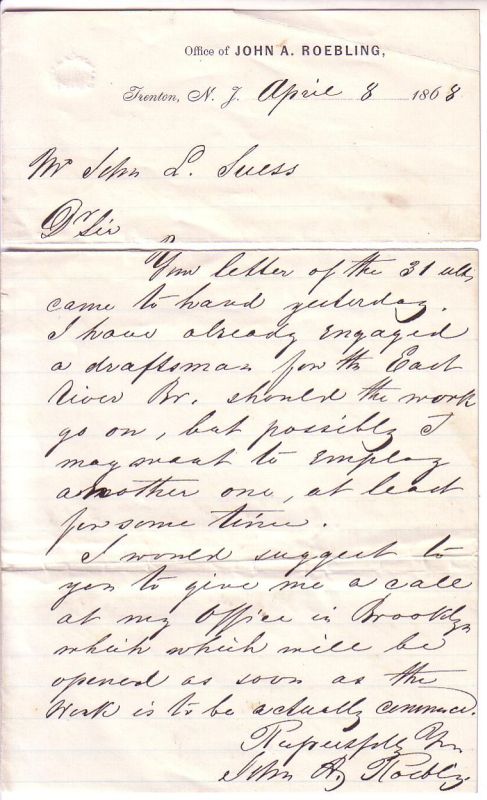 Office of JOHN A. ROEBLING,
Trenton, N. J. April 8 1868
Mr John L. Suess
Dr Sir
Your letter of the 31 ult.
came to hand yesterday.
I have already engaged
a draftsman for the East
River Br. should the work
go on, but possibly I
may want to employ
another one, at least
for some time.
I would suggest to
you to give me a call
at my Office in Brooklyn
which which will be
opened as soon as the
work is to be actually commenced.
Respectfully Yrs
John A. Roebling